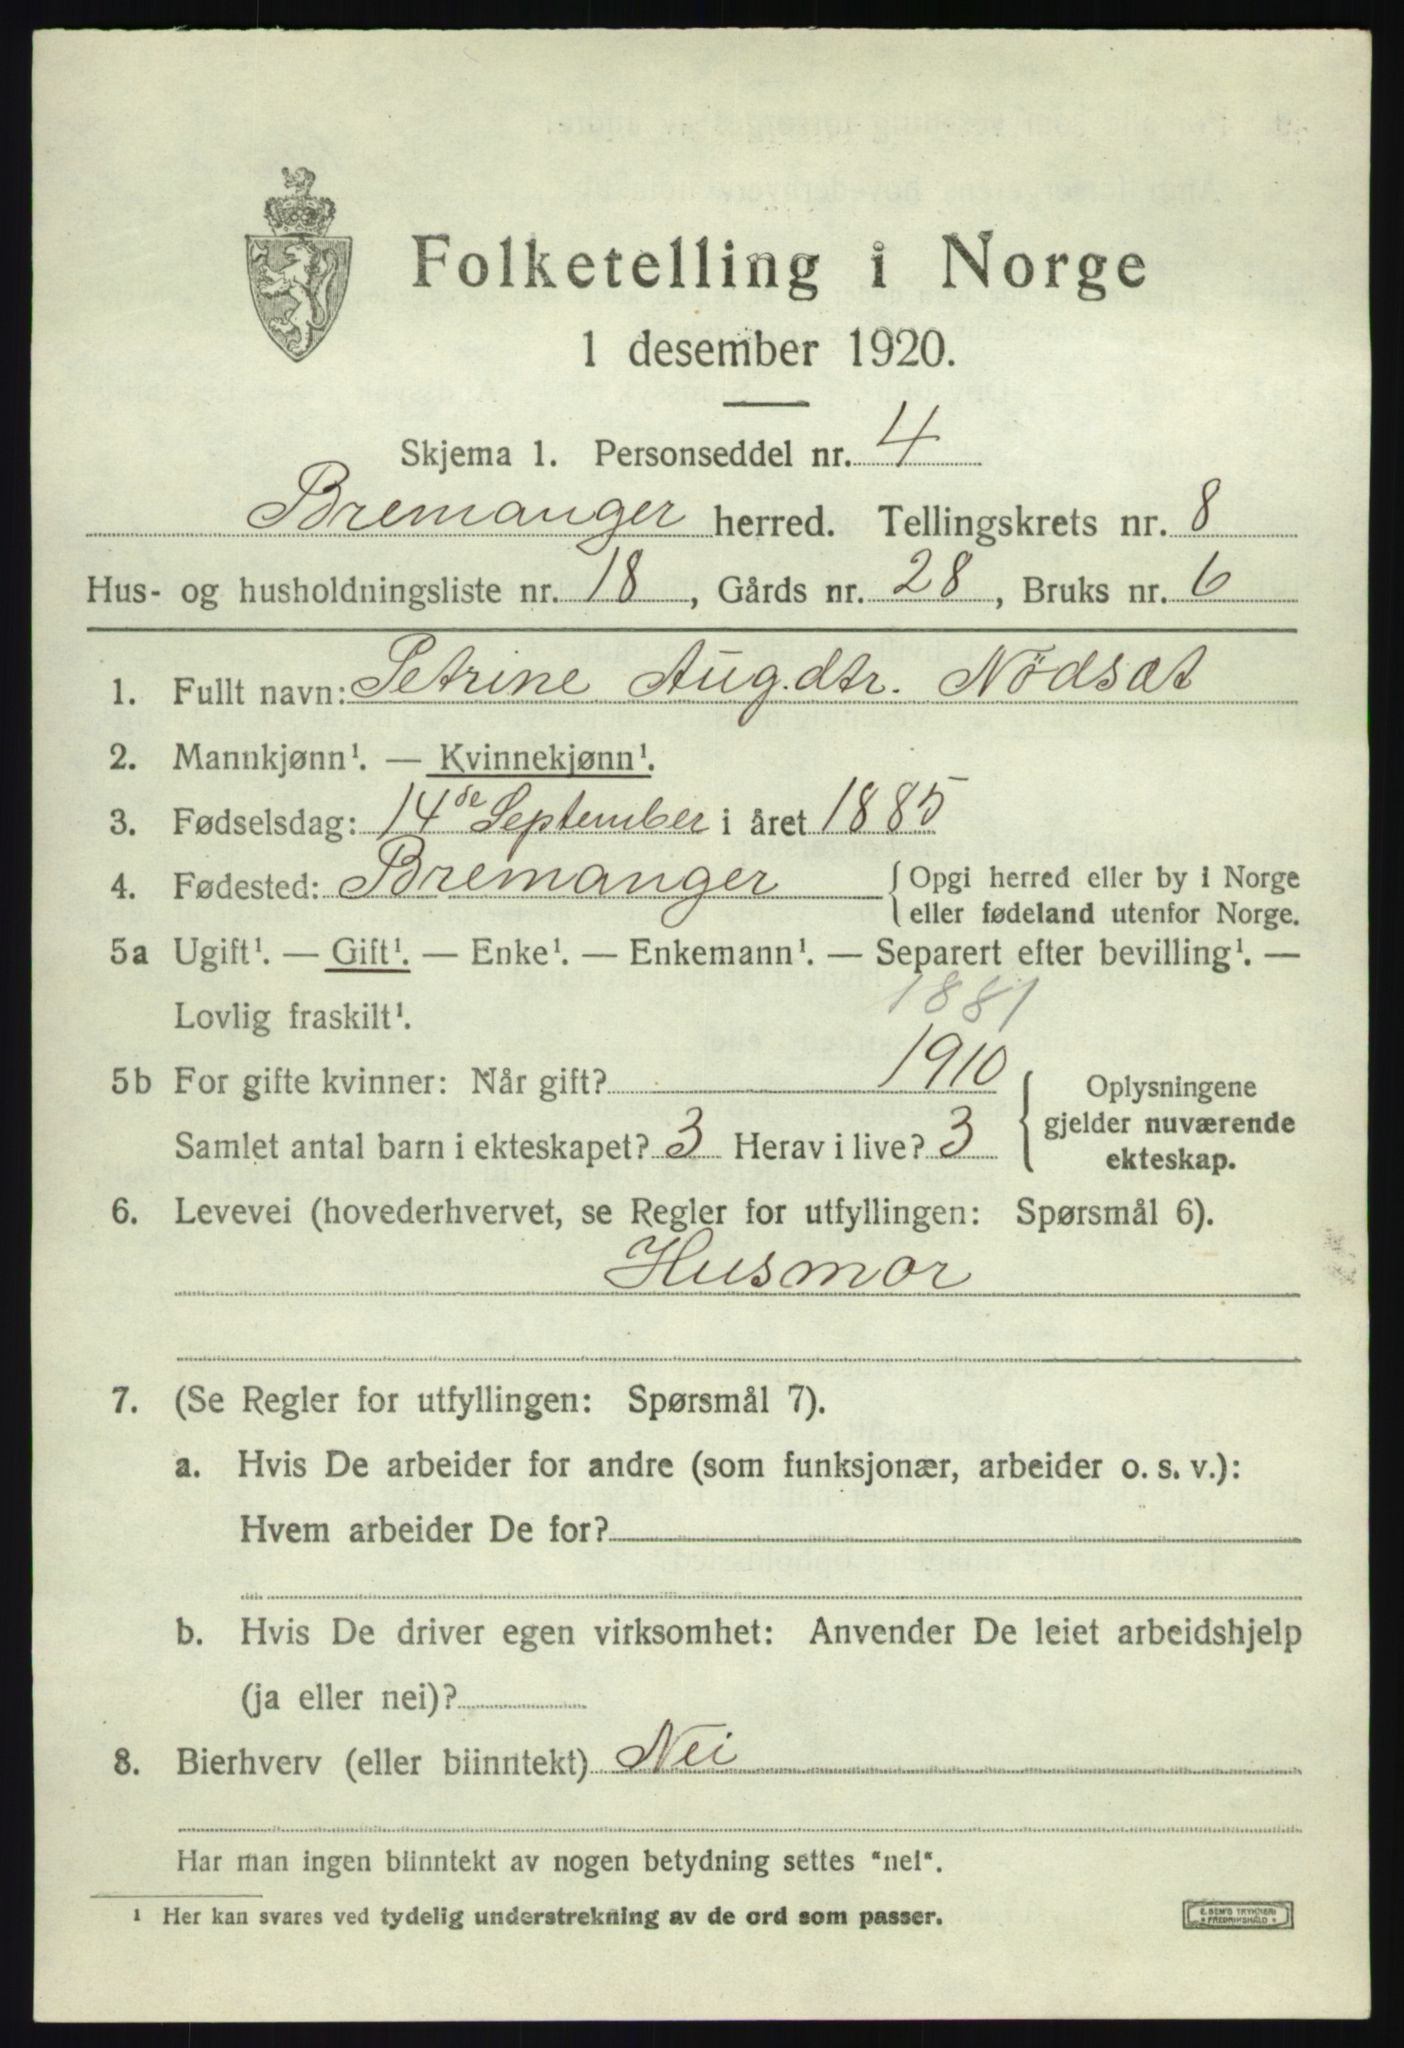 Folketelling i Norge
1 desember 1920.
Skjema 1. Personseddel nr. 4
Bremanger herred. Tellingskrets nr. 8
Hus- og husholdningsliste nr. 18, Gårds nr. 28, Bruks nr. 6
1. Fullt navn: Petrine Aug.dtr. Nödsæt
2. Mannkjønn¹. — Kvinnekjønn¹.
3. Fødselsdag: 14de September i året 1885
4. Fødested: Bremanger { Opgi herred eller by i Norge
eller fødeland utenfor Norge.
5a Ugift¹. — Gift¹. — Enke¹. — Enkemann¹. — Separert efter bevilling¹. —
Lovlig fraskilt¹. 1881
5b For gifte kvinner: Når gift? 1910 { Oplysningene
gjelder nuværende
ekteskap.
Samlet antal barn i ekteskapet? 3 Herav i live? 3
6. Levevei (hovederhvervet, se Regler for utfyllingen: Spørsmål 6).
Husmor
7. (Se Regler for utfyllingen: Spørsmål 7).
a. Hvis De arbeider for andre (som funksjonær, arbeider o. s. v.):
Hvem arbeider De for?
b. Hvis De driver egen virksomhet: Anvender De leiet arbeidshjelp
(ja eller nei)?
8. Bierhverv (eller biinntekt) Nei
Har man ingen biinntekt av nogen betydning settes "nei".
¹ Her kan svares ved tydelig understrekning av de ord som passer.
E. SEM'S TRYKKERI
FREDRIKSHALD